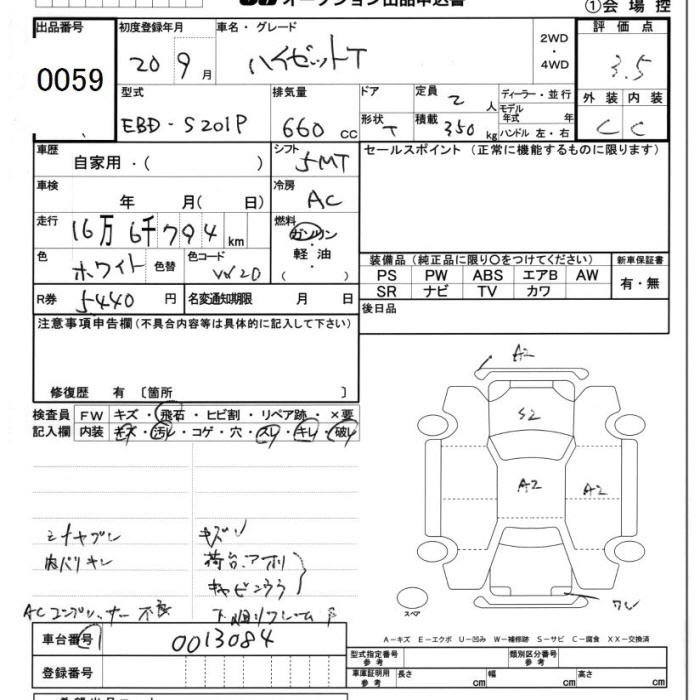 オークション出品申込書
①会場控
出品番号
0059
初度登録年月
20 9月
車名・グレード
ハイゼットT
2WD・4WD
評価点
3.5
外装 内装
C C
型式
EBD-S201P
排気量
660 cc
ドア
形状 T
定員 2 人
積載 350 kg
ディーラー・並行
モデル年式 年
ハンドル 左・右
車歴
自家用・( )
シフト
5MT
セールスポイント (正常に機能するものに限ります)
車検
年 月( 日)
冷房
AC
走行
16万6千794km
燃料
ガソリン・軽油・( )
色
ホワイト
色替
色コード
W20
装備品(純正品に限り○をつけてください)
PS PW ABS エアB AW
SR ナビ TV カワ
新車保証書
有・無
R券
5440円
名変通知期限 月 日
後日品
注意事項申告欄(不具合内容等は具体的に記入して下さい)
修復歴 有 〔箇所 〕
検査員記入欄
FW キズ・飛石・ヒビ割・リペア跡・×要
内装 キズ・汚レ・コゲ・穴・スレ・キレ・破レ
A2
S2
A2
A2
スペア
キズ
荷台、アオリ
ACコンプレッサー不良
A－キズ E－エクボ U－凹み W－補修跡 S－サビ C－腐食 XX－交換済
車台番号
0013084
登録番号
型式指定番号 参考
類別区分番号 参考
車庫証明用 参考
長さ cm
幅 cm
高さ cm